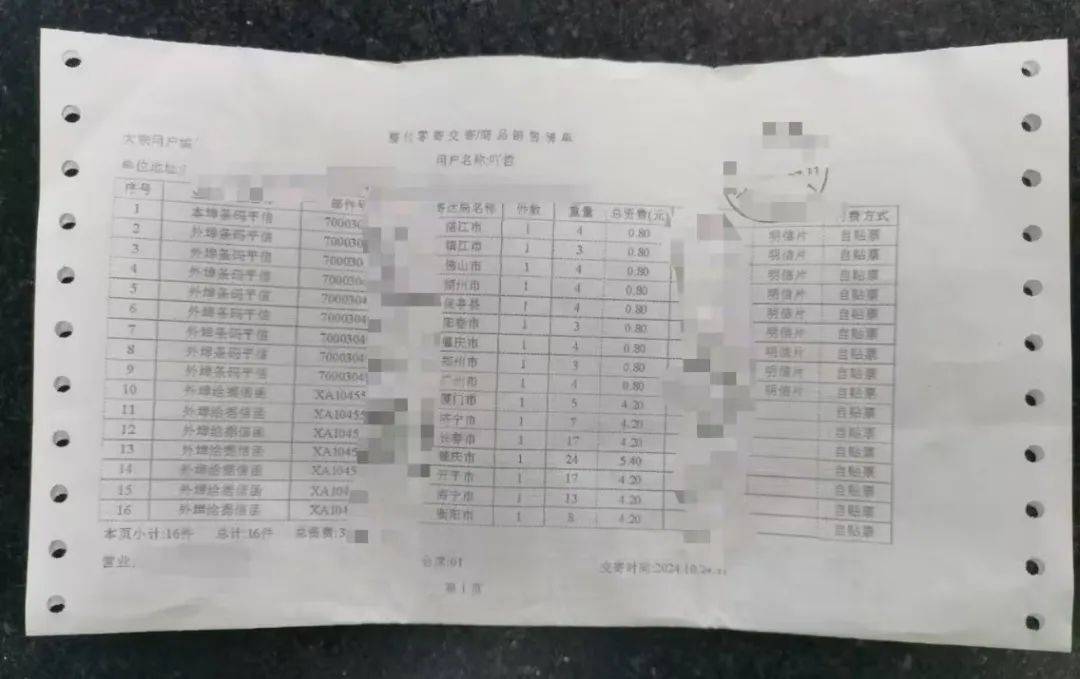 大宗用户
整付零寄交寄/商品销售清单
用户名称:
单位地址:
序号 邮件号 寄达局名称 件数 重量 总资费(元) 费方式
1 本埠条码平信 70003 1 4 0.80 明信片 自贴票
2 外埠条码平信 70003 镇江市 1 3 0.80 明信片 自贴票
3 外埠条码平信 70003 佛山市 1 4 0.80 明信片 自贴票
4 外埠条码平信 70003 州市 1 4 0.80 明信片 自贴票
5 外埠条码平信 7000304 县 1 4 0.80 明信片 自贴票
6 外埠条码平信 7000304 阳春市 1 3 0.80 明信片 自贴票
7 外埠条码平信 7000304 肇庆市 1 4 0.80 明信片 自贴票
8 外埠条码平信 7000304 郑州市 1 3 0.80 明信片 自贴票
9 外埠条码平信 7000304 广州市 1 4 0.80 明信片 自贴票
10 外埠给据信函 XA10455 厦门市 1 5 4.20 自贴票
11 外埠给据信函 XA10455 济宁市 1 7 4.20 自贴票
12 外埠给据信函 XA10455 长春市 1 17 4.20 自贴票
13 外埠给据信函 XA1045 肇庆市 1 24 5.40 自贴票
14 外埠给据信函 XA1045 开平市 1 17 4.20 自贴票
15 外埠给据信函 XA104 南宁市 1 13 4.20 自贴票
16 外埠给据信函 XA104 衡阳市 1 8 4.20 自贴票
本页小计:16件 总计:16件 总资费:3
营业 台席:01 交寄时间:2024.10.24
第1页